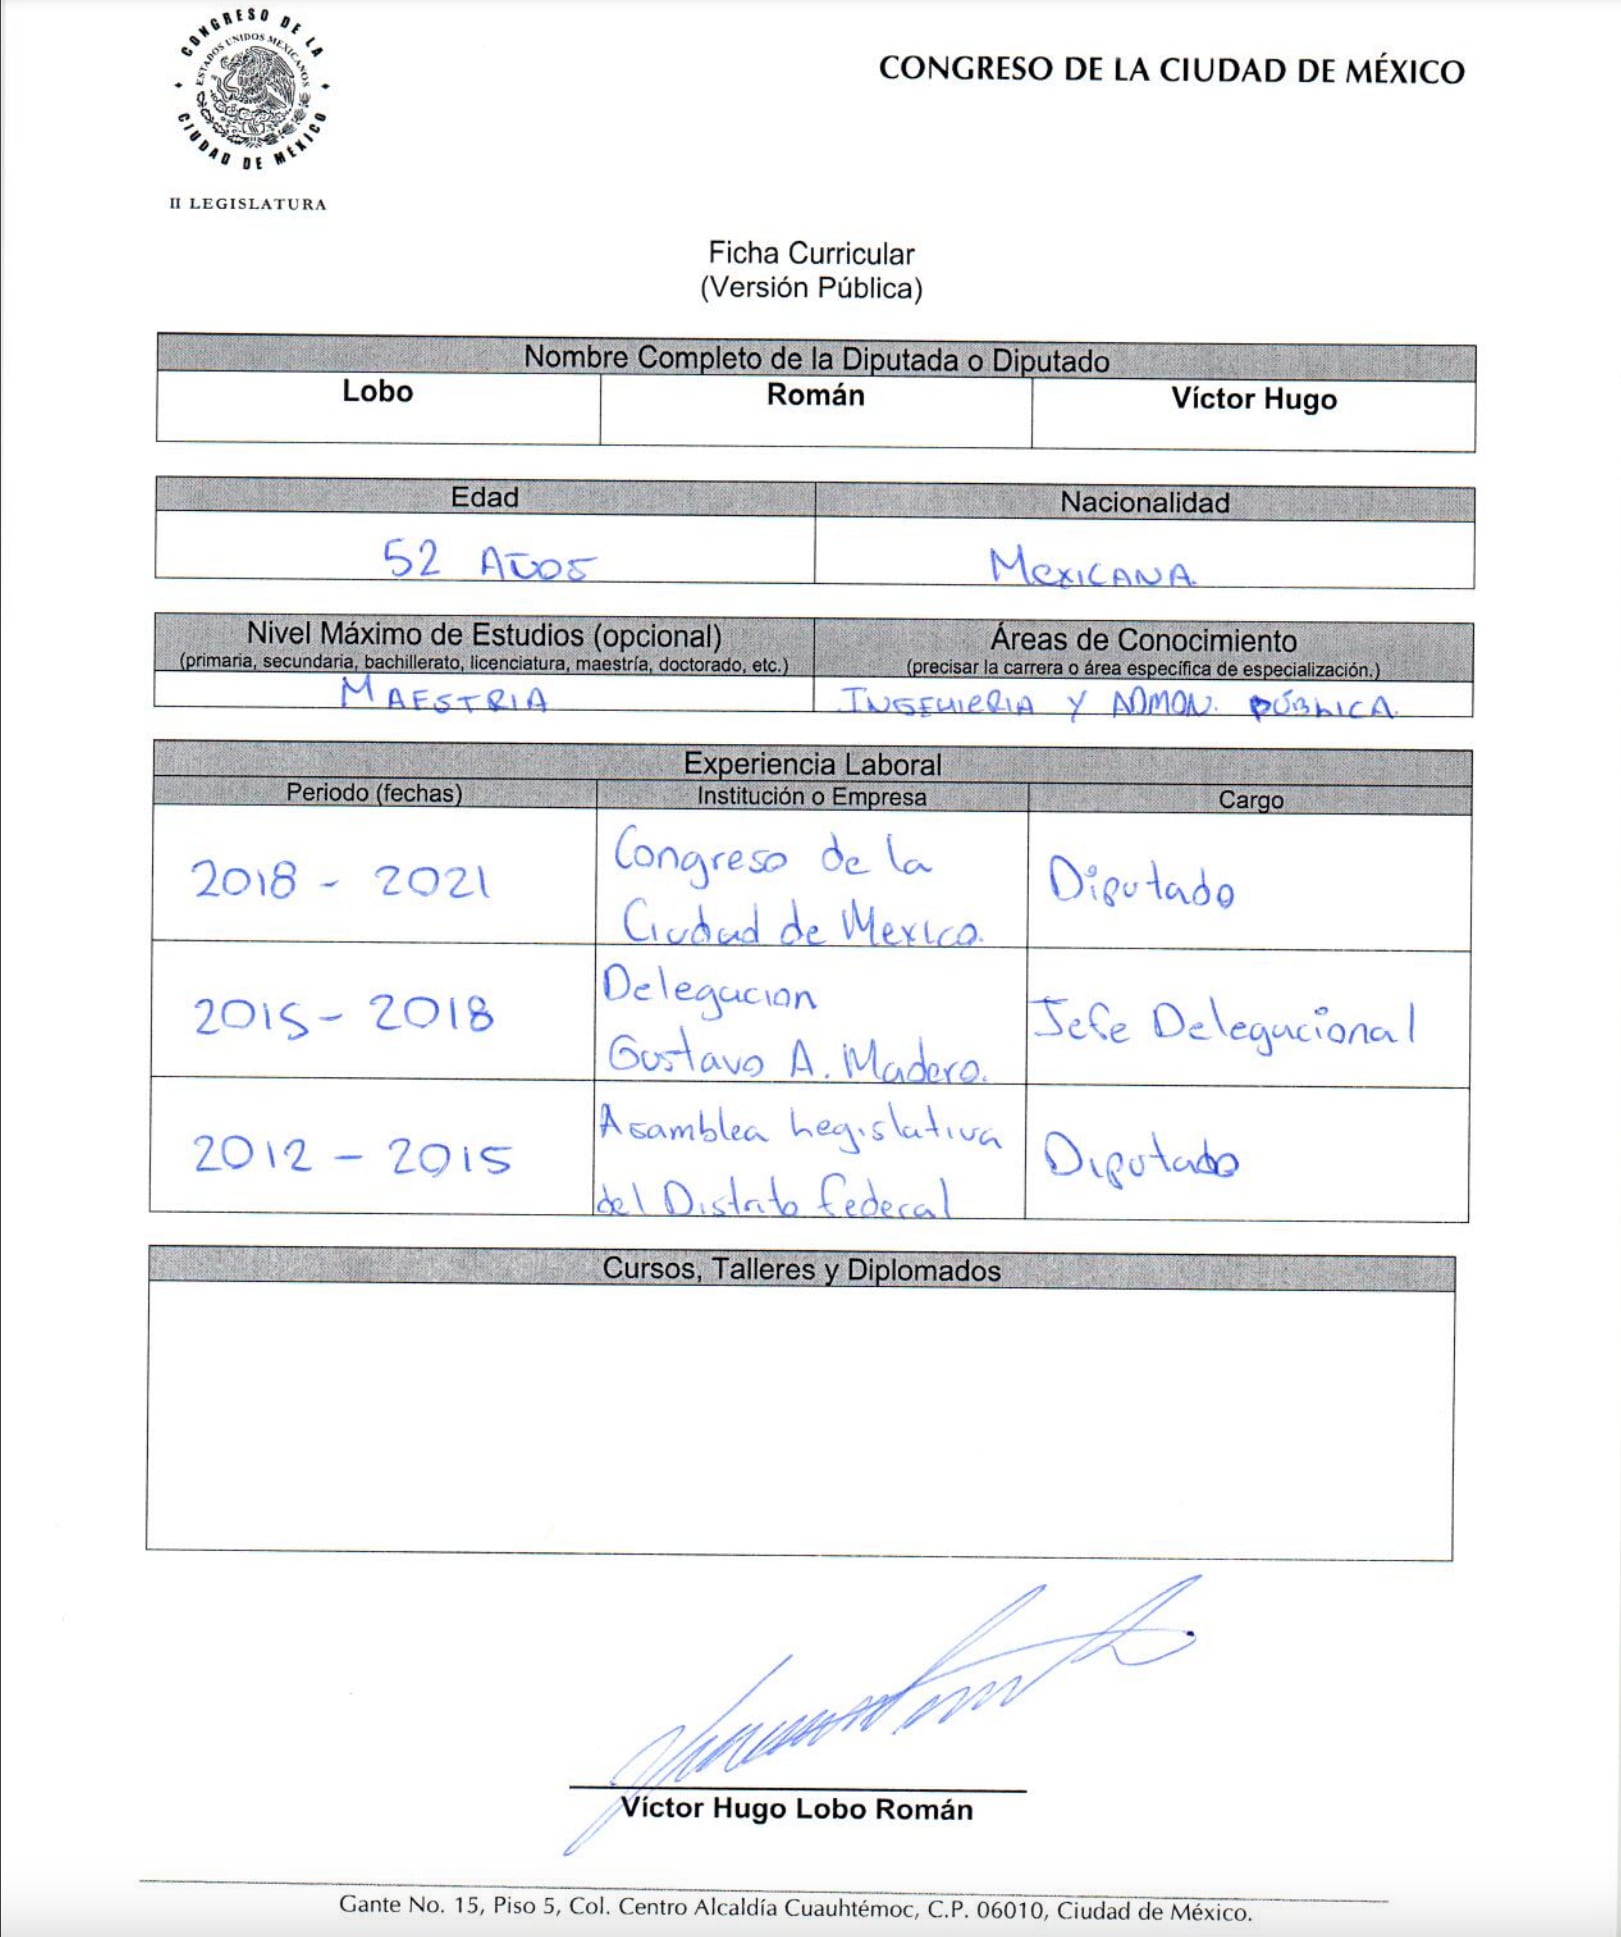 CONGRESO DE LA
CIUDAD DE MÉXICO
ESTADOS UNIDOS MEXICANOS
II LEGISLATURA
CONGRESO DE LA CIUDAD DE MÉXICO
Ficha Curricular
(Versión Pública)
Nombre Completo de la Diputada o Diputado
Lobo Román Víctor Hugo
Edad Nacionalidad
52 AÑOS MEXICANA
Nivel Máximo de Estudios (opcional) Áreas de Conocimiento
(primaria, secundaria, bachillerato, licenciatura, maestría, doctorado, etc.) (precisar la carrera o área específica de especialización.)
MAESTRIA INGENIERIA Y ADMON. PÚBLICA.
Experiencia Laboral
Periodo (fechas) Institución o Empresa Cargo
2018 - 2021 Congreso de la Diputado
Ciudad de Mexico.
2015 - 2018 Delegacion Jefe Delegacional
Gustavo A. Madero.
2012 - 2015 Asamblea Legislativa Diputado
del Distrito Federal
Cursos, Talleres y Diplomados
Víctor Hugo Lobo Román
Gante No. 15, Piso 5, Col. Centro Alcaldía Cuauhtémoc, C.P. 06010, Ciudad de México.